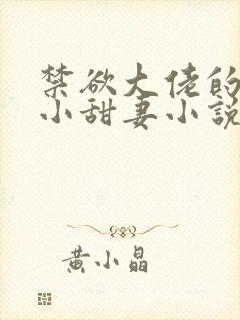 禁欲大佬的
小甜妻小説
黄小晶